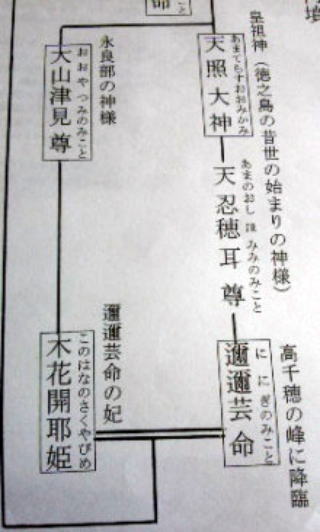 命
こと
頃
皇祖神（徳之島の昔世の始まりの神様）
あまてらすおおみかみ
天照大神
あまのおし ほ みみのみこと
天忍穂耳尊
高千穂の峰に降臨
に にぎのみこと
邇邇芸命
永良部の神様
おおやつみのみこと
大山津見尊
邇邇芸命の妃
このはなのさくやびめ
木花開耶姫